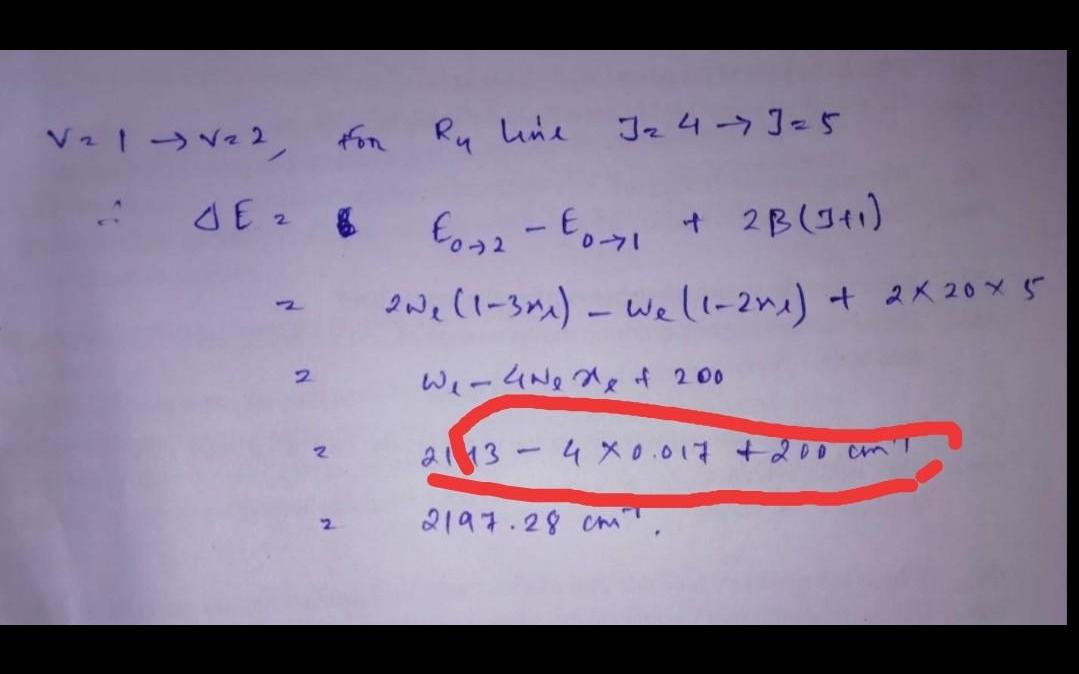 V=1 → V=2, for R₄ line J=4 → J=5
∴ ΔE = E₀→₂ - E₀→₁ + 2B(J+1)
= 2ωₑ(1-3xₑ) - ωₑ(1-2xₑ) + 2×20×5
= ωₑ - 4ωₑxₑ + 200
= 2143 - 4×0.017 + 200 cm⁻¹
= 2197.28 cm⁻¹.